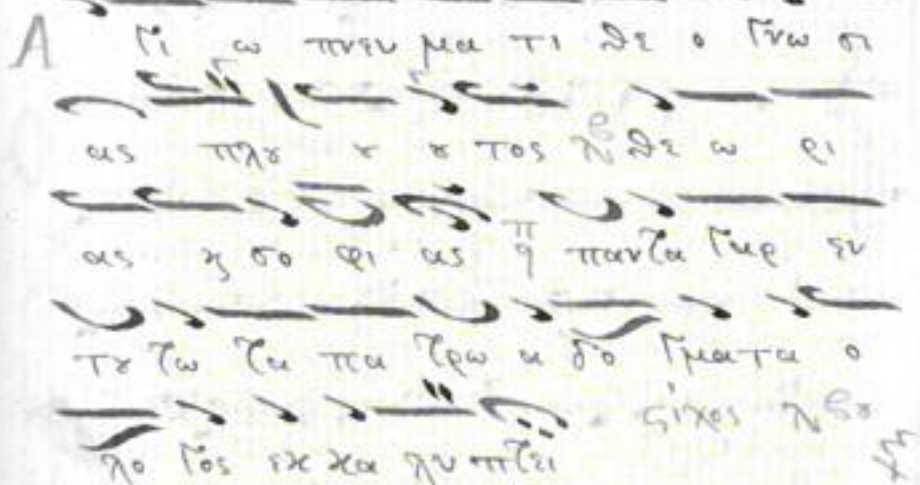 Α Γι ω πνευ μα τι θε ο Γνω σι
ας πλȣ ȣ ȣ τος θε ω ρι
ας ϗ σο φι ας πανζα Γαρ εν
τȣ τω τα πα τρω α δο Γματα ο
λο Γος εκ κα λυ πτει στιχος